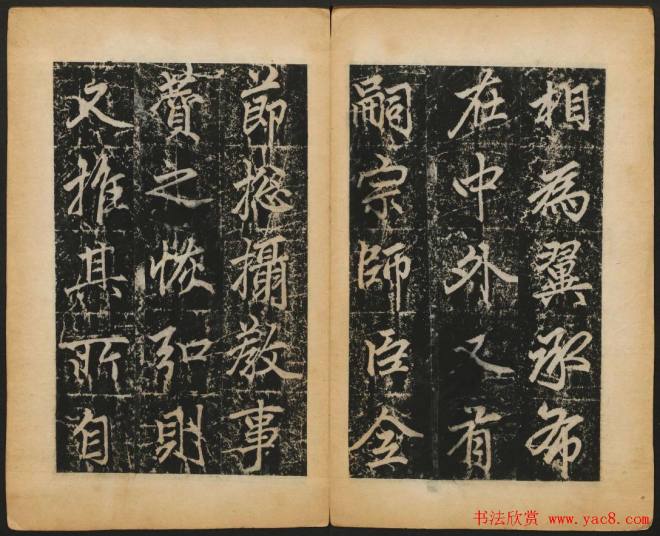 相為翼承布
在中外又有
嗣宗師臣全
節揔攝教事
贊之恢弘則
又推其所自
书法欣赏 www.yac8.com